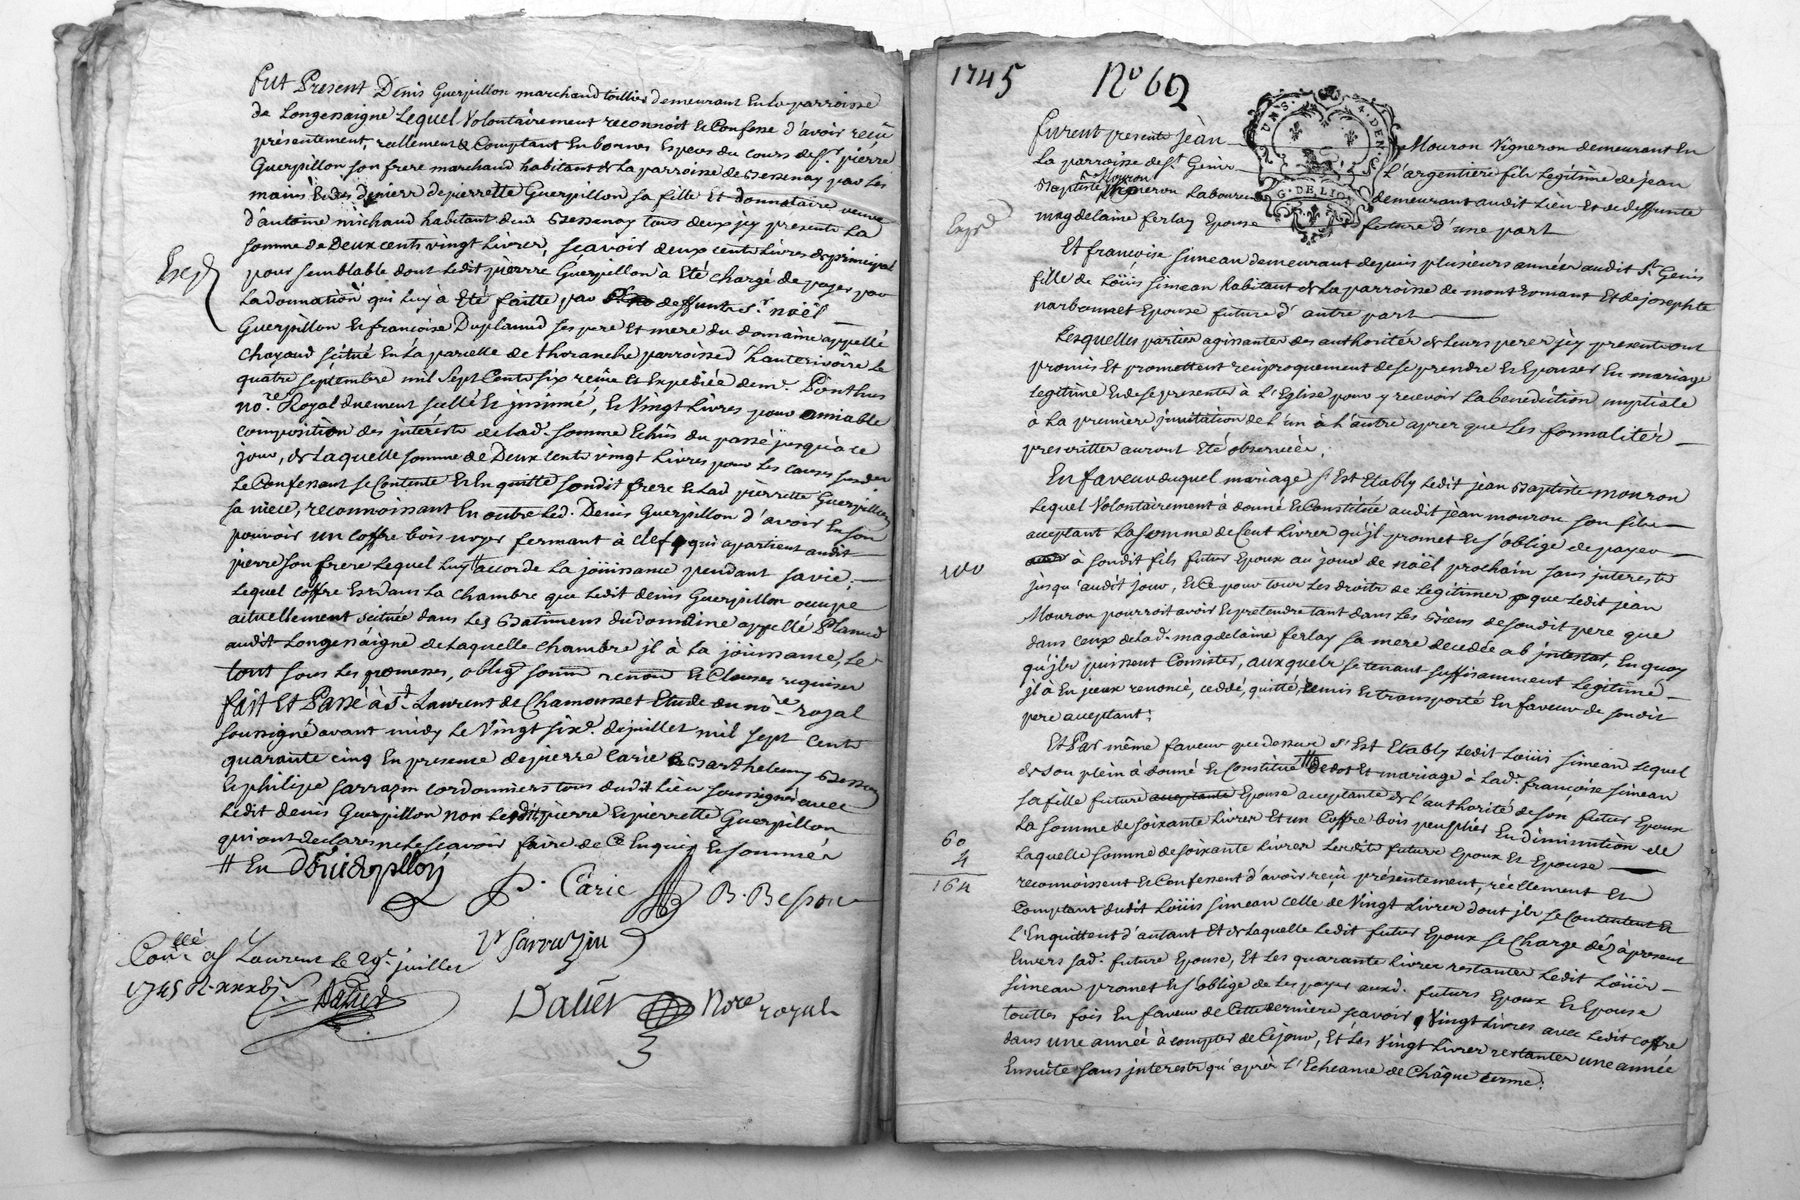 Fut Present Denis Guerpillon marchand toillier demeurant en la parroisse
de Longessaigne Lequel Volontairement reconnoit et Confesse d'avoir reçû
présentement, reellement & Comptant En bonnes Especes du cours de Sr. pierre
Guerpillon son frere marchand habitant de La parroisse de Bessenay par les
mains de pierrette Guerpillon sa fille Et donnataire veuve
d'antoine michaud habitant dud. Bessenay tous deux jcy presents La
somme de Deux cents vingt Livres, sçavoir deux cents Livres de principal
pour semblable dont Ledit pierre Guerpillon à Eté chargé de payer par
La donnation qui luy à Eté faitte par deffunts Sr. noël
Guerpillon Et françoise Duplamud ses pere Et mere du domaine appellé
Chazaud scitué En La parcelle de thoranche parroisse d'hauterivoire Le
quatre septembre mil Sept Cents six reçüe Et Expediée de me. Ponthus
no.re Royal duement scellé Et jnsinué, Et Vingt Livres pour amiable
composition des jnterests de lad. somme Echûs du passé jusqu'à ce
jour, de Laquelle somme de Deux Cents vingt Livres pour Les causes susdes
Le Confessant se Contente Et En quitte sondit frere Et lad. pierrette Guerpillon
sa niece, reconnoissant En outre Led. Denis Guerpillon d'avoir En son
pouvoir un Coffre bois noyer fermant à clef qui apartient audit
pierre son frere Lequel Luy # accorde La joüissance pendant sa vie,
Lequel Coffre Est dans La chambre que Ledit denis Guerpillon occupe
actuellement scituée dans Les Batimens du domaine appellé Plamud
audit Longessaigne de Laquelle chambre jl à La joüissance, Le
tout sous Les promesses, oblig. soum. renon. Et Clauses requises
fait Et Passé à St. Laurent de Chamousset Etude du no.re royal
soussigné avant midy Le Vingt six.e de juillet mil sept cents
quarante cinq En presence de pierre Carie Barthelemy Besson
Et philipe Sarrazin cordonniers tous dudit Lieu soussignés avec
Ledit denis Guerpillon non Lesdits pierre Et pierrette Guerpillon
qui ont declaré ne Le sçavoir faire de Ce Enquis Et sommés
# En D Guerpillon
P. Cârie B. Besson
Sarrazin
Con.llé a St Laurent Le 29e. juillet
1745
Dalier
Dalier Nore royal
Exp.d
1745 No 62
furent presents jean Mouron Vigneron demeurant En
La parroisse de St. Genis L'argentiere fils Legitime de jean
Baptiste Mouron Laboureur demeurant audit Lieu Et de deffunte
magdelaine ferlay Epouse future d'une part
GN. DE LION
Exp.d
Et françoise simean demeurant depuis plusieurs années audit St. Genis
fille de Loüis simean habitant de La parroisse de montromant Et de josephte
narbonnet Epouse future d'autre part
Lesquelles parties agissantes des authorités de Leurs peres jcy presents ont
promis Et promettent reciproquement de se prendre Et Epouser En mariage
Legitime Et de se presenter à L'Eglise pour y recevoir La benediction nuptiale
à La premiere jnvitation de L'un à L'autre apres que Les formalités
prescrittes auront Eté observées.
En faveur duquel mariage s'Est Etably Ledit jean Baptiste mouron
Lequel Volontairement à donné Et Constitué audit jean mouron son fils
acceptant La somme de Cent Livres qu'jl promet Et s'oblige de payer
à sondit fils futur Epoux au jour de noël prochain sans jnterests
100
jusqu'audit jour, Et Ce pour tous Les droits de Legitimes que Ledit jean
Mouron pourroit avoir Et pretendre tant dans Les Biens de sondit pere que
dans ceux de lad. magdelaine ferlay sa mere decedée ab jntestat, En quoy
qu'jls puissent Consister, auxquels se tenant suffisamment Legitimé
jl à En jceux renoncé, ceddé, quitté, remis Et transporté En faveur de sondit
pere acceptant;
Et Par même faveur que dessus s'Est Etably Ledit Loüis simean Lequel
de son plein à donné Et Constitué de dot Et mariage à lad. françoise simean
sa fille future acceptante Epouse acceptante de L'authorité de son futur Epoux
La somme de soixante Livres Et un Coffre bois peuplier En Diminution de
Laquelle somme de soixante Livres Lesdits futurs Epoux Et Epouse
60
4
164
reconnoissent Et Confessent d'avoir reçü présentement, réellement Et
Comptant dudit Loüis simean celle de Vingt Livres dont jls se Contentent Et
L'Enquittent d'autant Et de Laquelle Ledit futur Epoux se Charge dez à present
Envers sad. future Epouse, Et Les quarante Livres restantes Ledit Loüis
simean promet Et s'oblige de Les payer auxd. futurs Epoux Et Epouse
touttes fois En faveur de Cette derniere sçavoir Vingt Livres avec Ledit coffre
dans une année à compter de Ce jour, Et Les Vingt Livres restantes une année
Ensuite sans jnterests qu'apres L'Echeance de Châque terme;